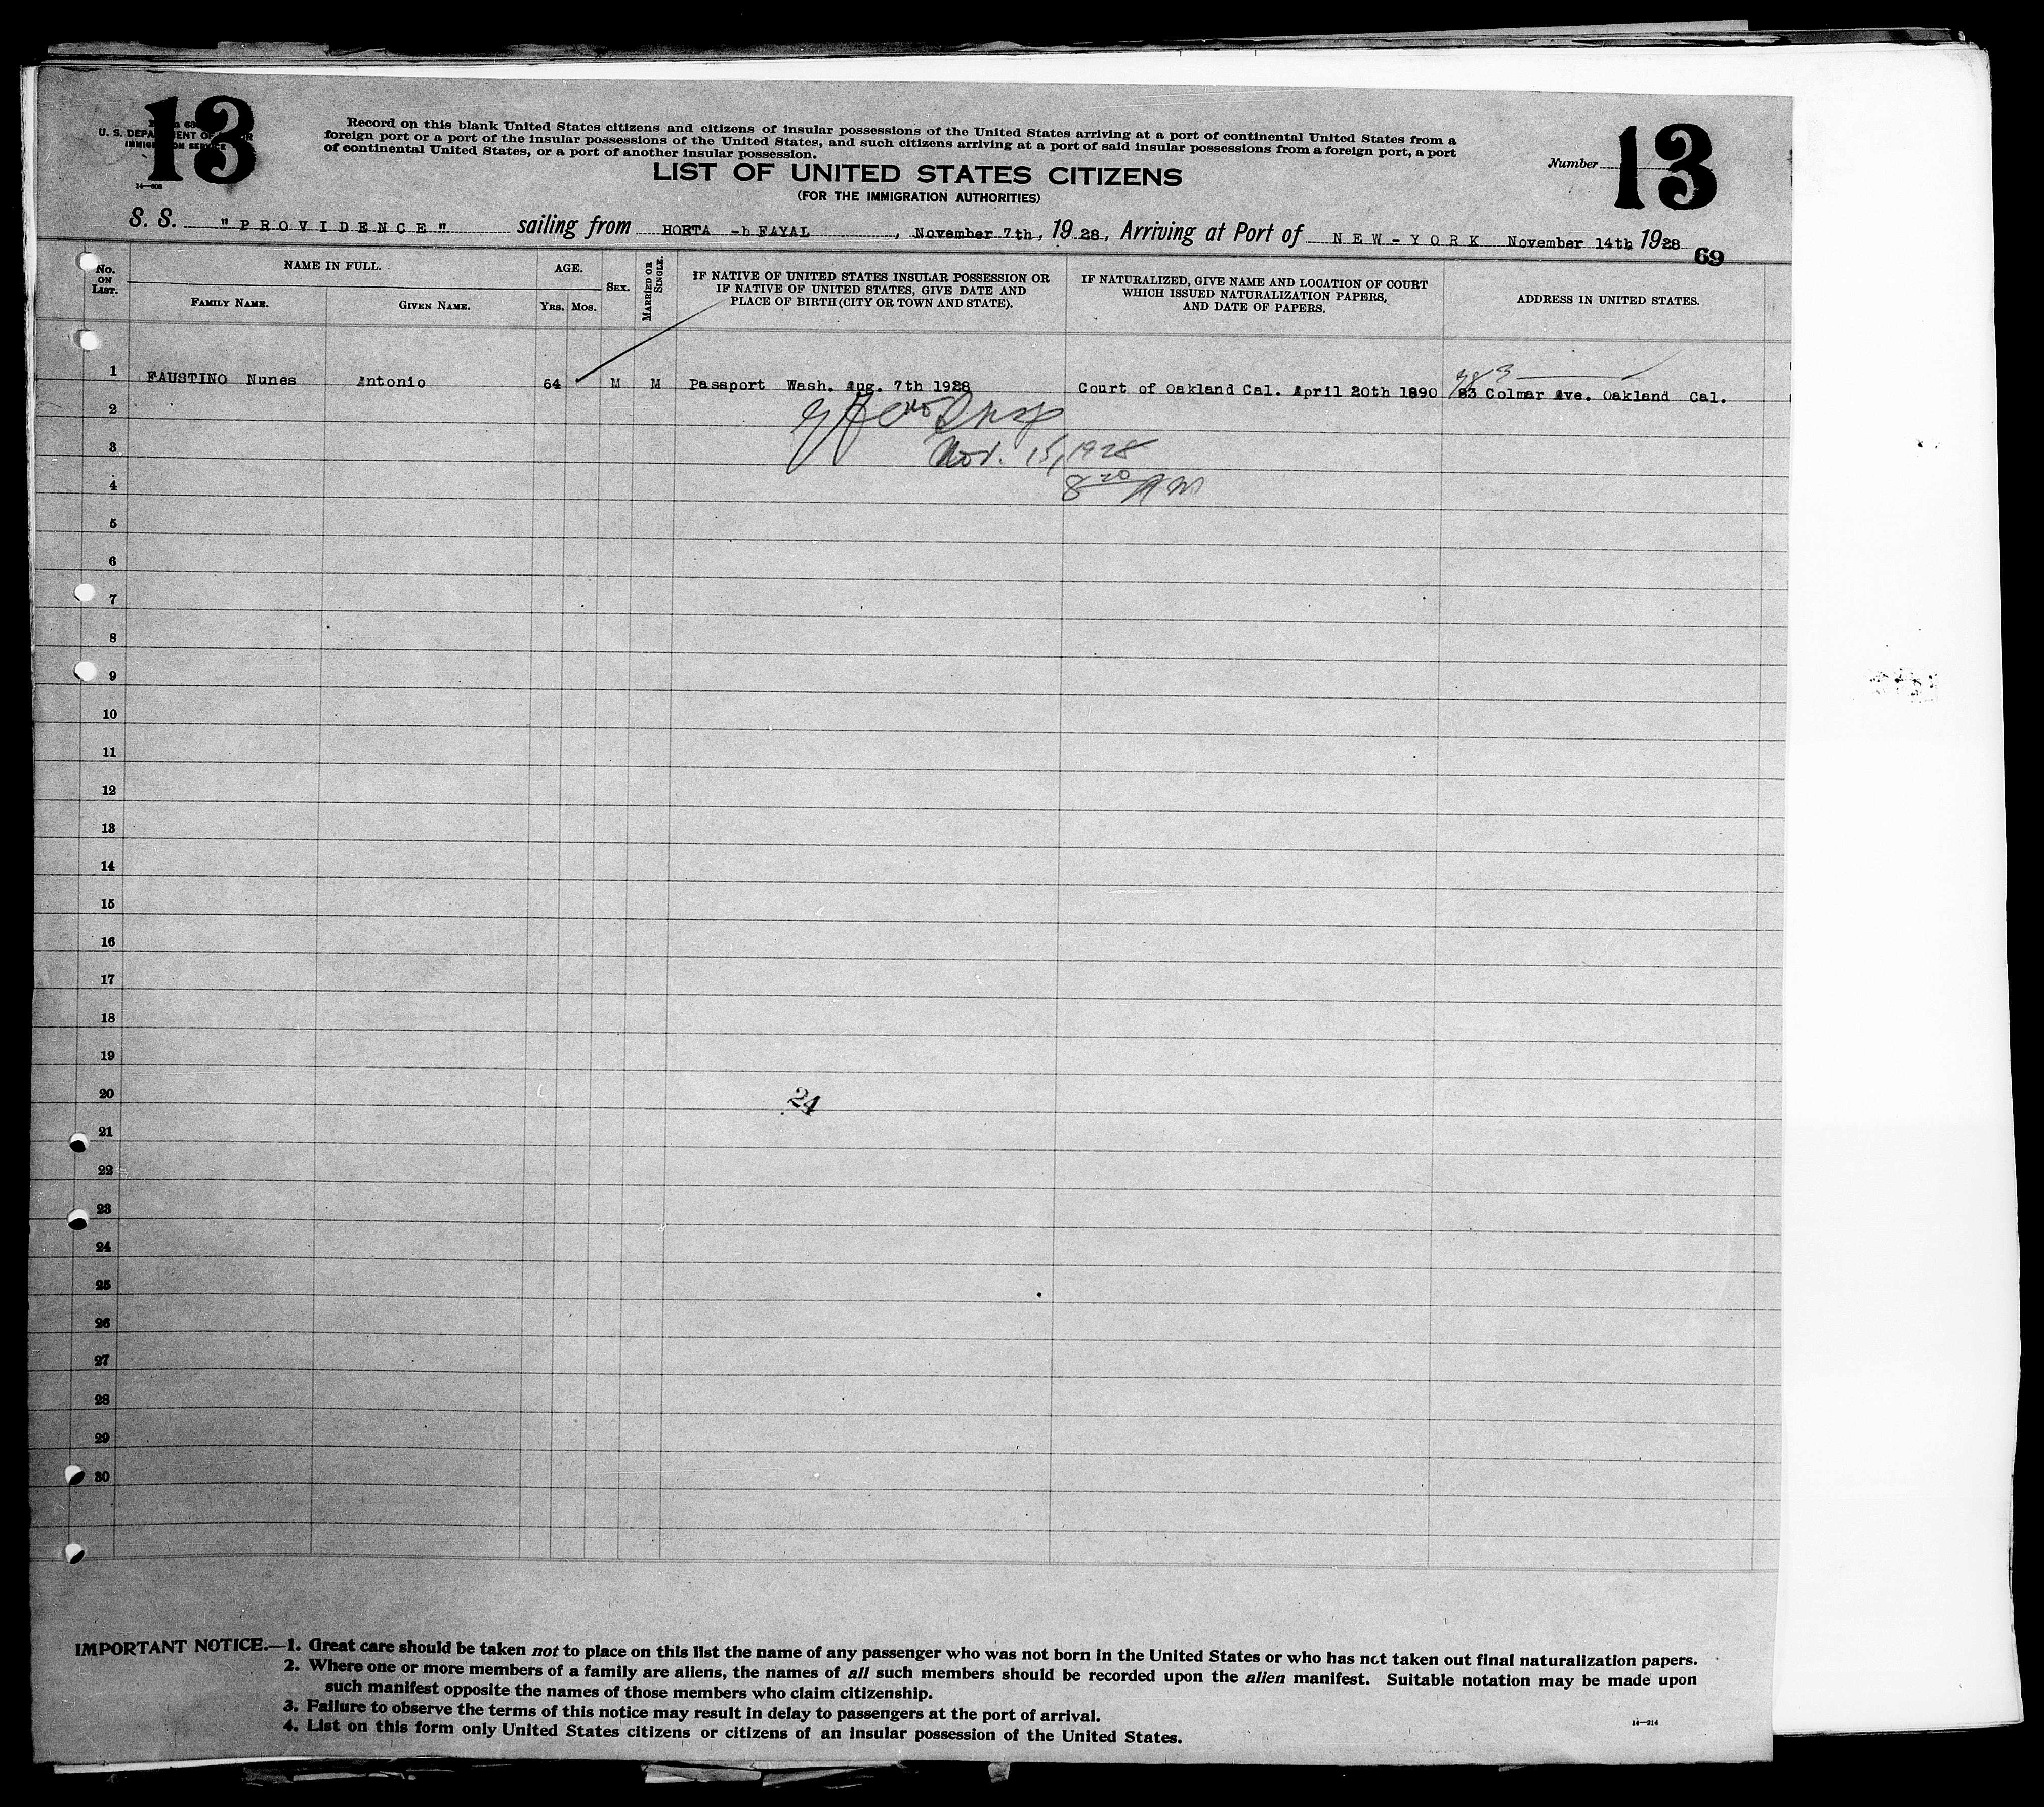 13
13
U. S. DEPARTMENT OF LABOR
IMMIGRATION SERVICE
14—608
Record on this blank United States citizens and citizens of insular possessions of the United States arriving at a port of continental United States from a
foreign port or a port of the insular possessions of the United States, and such citizens arriving at a port of said insular possessions from a foreign port, a port
of continental United States, or a port of another insular possession.
Number
LIST OF UNITED STATES CITIZENS
(FOR THE IMMIGRATION AUTHORITIES)
S. S. "PROVIDENCE" sailing from HORTA -b FAYAL, November 7th, 1928, Arriving at Port of NEW-YORK November 14th 1928
69
No. ON LIST.
NAME IN FULL.
FAMILY NAME.
GIVEN NAME.
AGE.
YRS. MOS.
SEX.
MARRIED OR SINGLE.
IF NATIVE OF UNITED STATES INSULAR POSSESSION OR
IF NATIVE OF UNITED STATES, GIVE DATE AND
PLACE OF BIRTH (CITY OR TOWN AND STATE).
IF NATURALIZED, GIVE NAME AND LOCATION OF COURT
WHICH ISSUED NATURALIZATION PAPERS,
AND DATE OF PAPERS.
ADDRESS IN UNITED STATES.
1 FAUSTINO Nunes Antonio 64 M M Passport Wash. Aug. 7th 1928 Court of Oakland Cal. April 20th 1890 83 Colmar Ave. Oakland Cal.
2
Insp
3
Nov. 15, 1928
4
8 20 AM
5
6
7
8
9
10
11
12
13
14
15
16
17
18
19
20
24
21
22
23
24
25
26
27
28
29
30
IMPORTANT NOTICE.—1. Great care should be taken not to place on this list the name of any passenger who was not born in the United States or who has not taken out final naturalization papers.
2. Where one or more members of a family are aliens, the names of all such members should be recorded upon the alien manifest. Suitable notation may be made upon
such manifest opposite the names of those members who claim citizenship.
3. Failure to observe the terms of this notice may result in delay to passengers at the port of arrival.
4. List on this form only United States citizens or citizens of an insular possession of the United States.
14—214